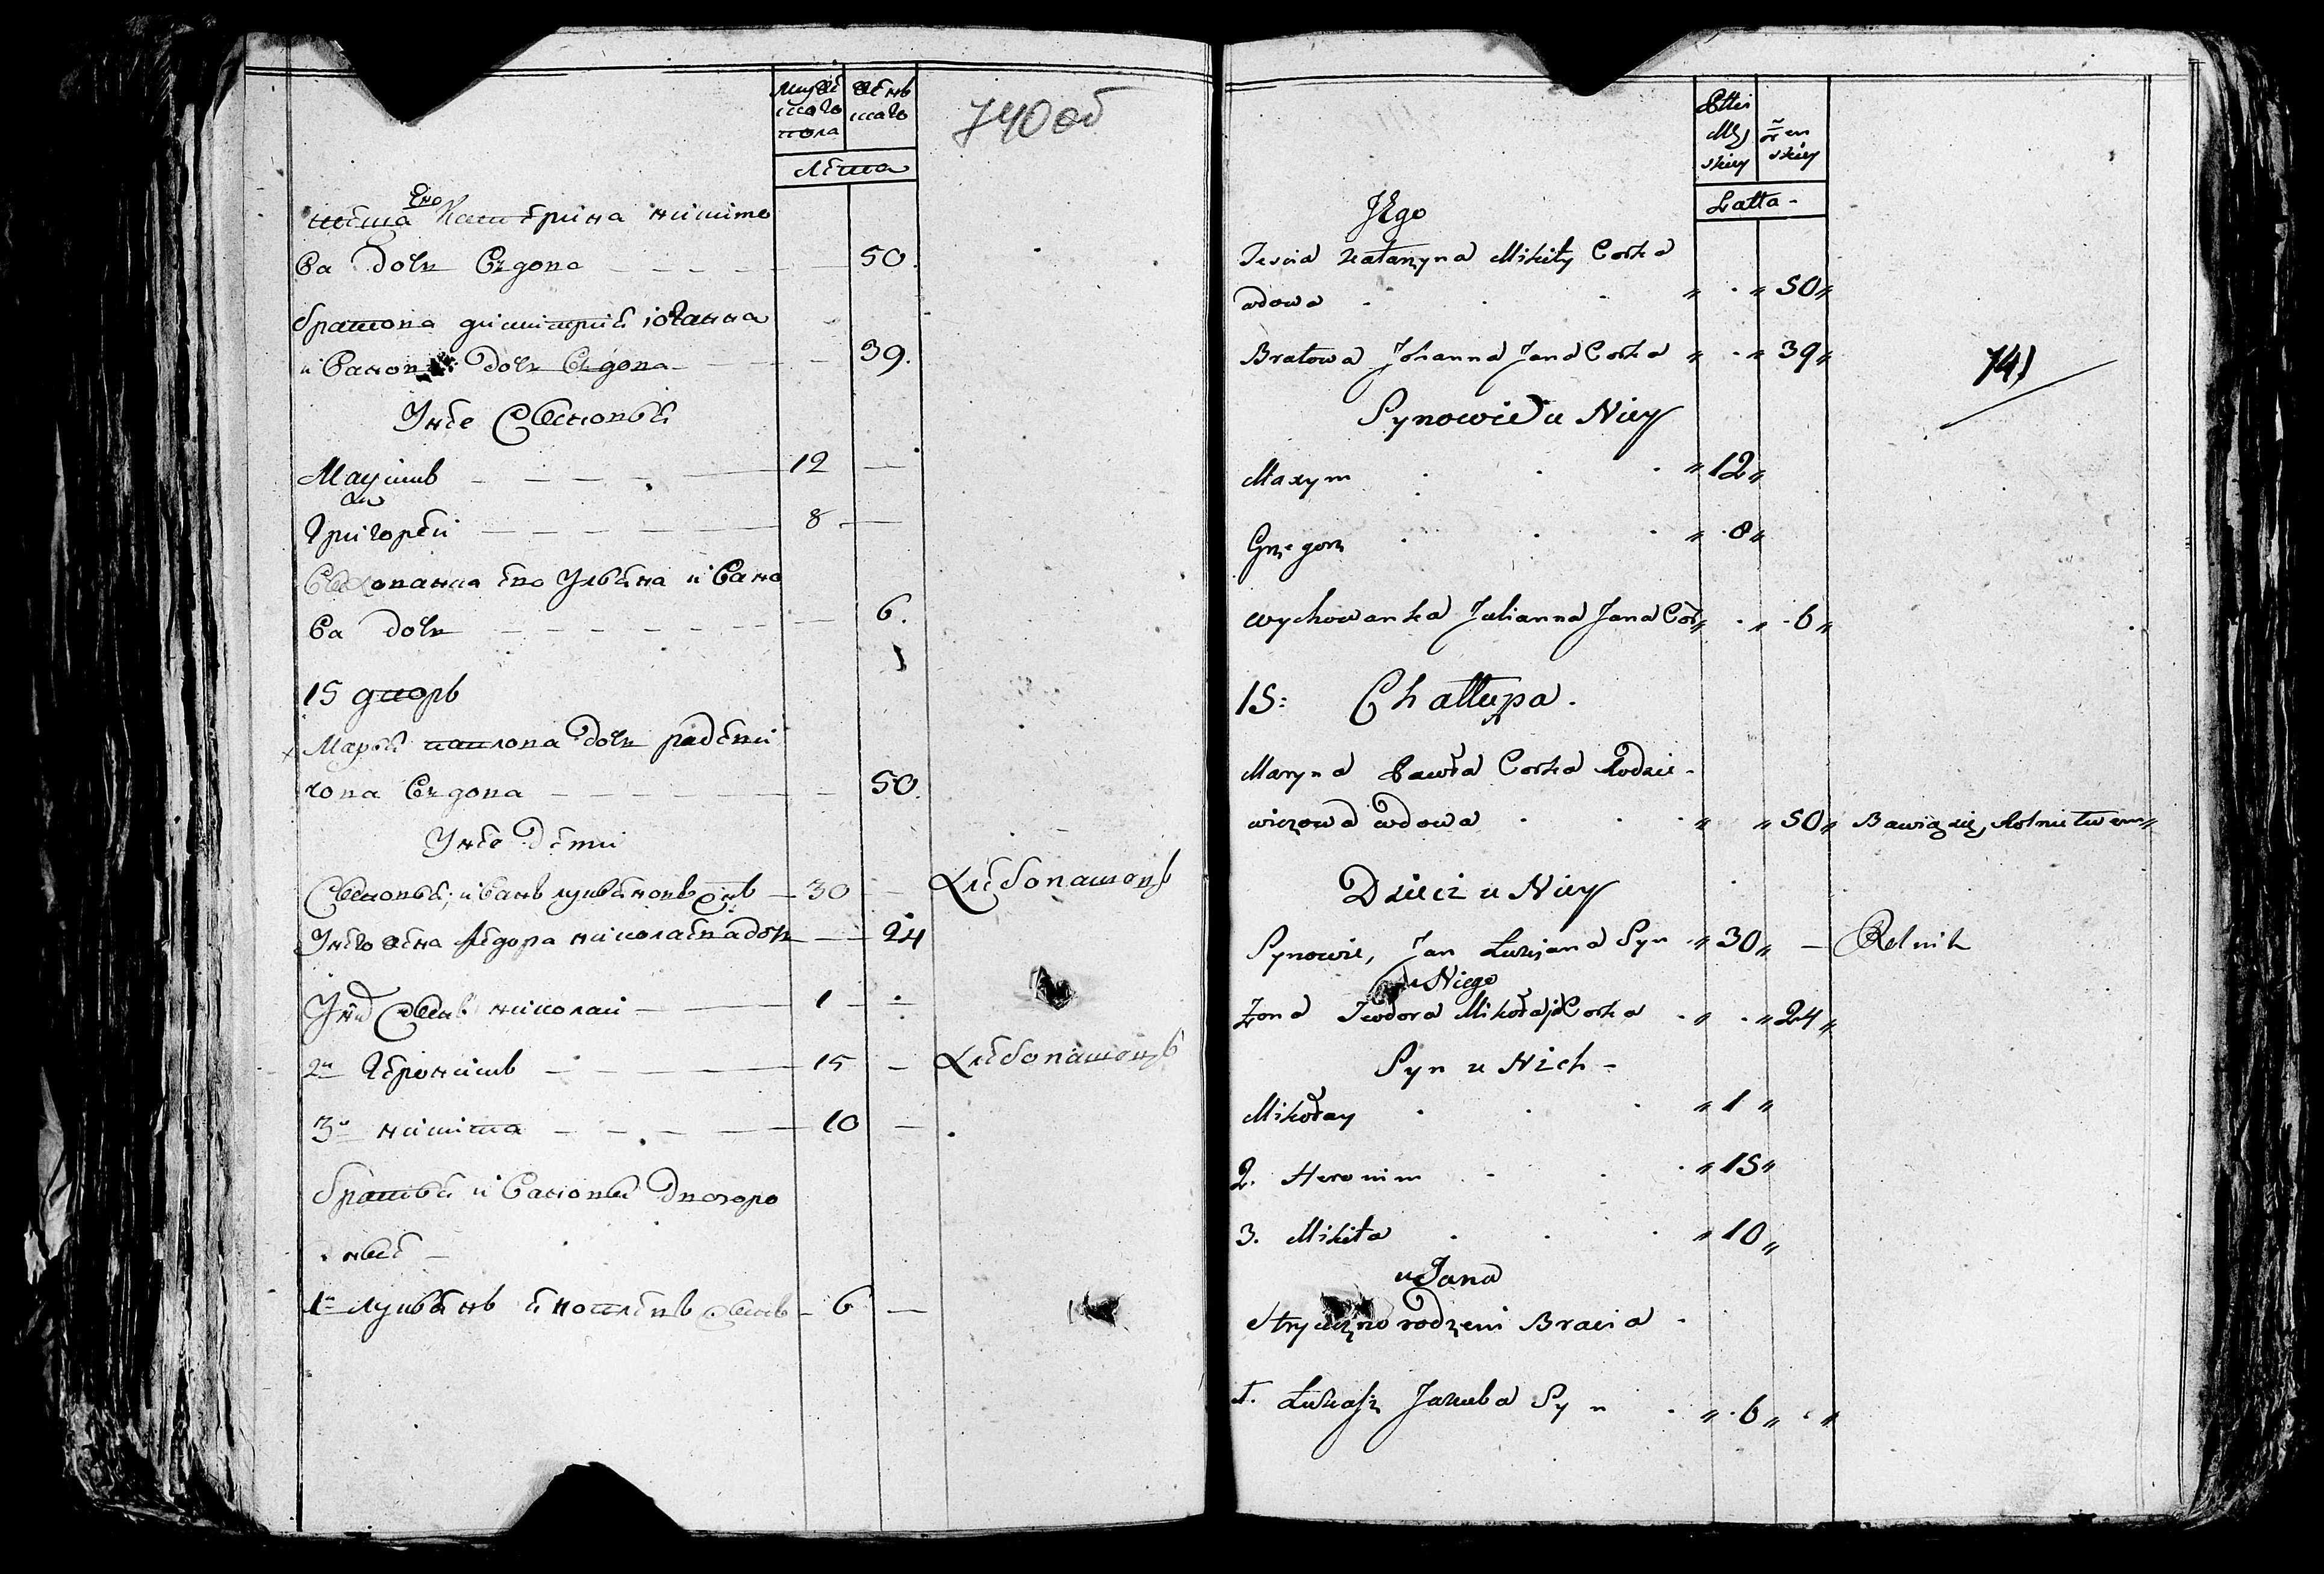 Мужес
каго
пола
Женс
каго
Лета
740 об
Его
теща Катерина никито
ва дочь вдова 50.
братова димитрий иоганна
иванова дочь вдова 39.
У нее сыновьй
Максимъ 12
Григорей 8
его Ульяна ивано
ва дочь 6.
15 дворъ
Марья павлова дочь радзеви
чова вдова 50
У нее дети
Сыновьй: иванъ лукьяновъ сынъ 30 Хлебопашецъ
У него жена Федора николаева дочь 24
У них сынъ николай 1
2й Геронимъ 15 Хлебопашецъ
3й никита 10
братьй ивановы двоюро
дные
1й лукьянъ сынъ 6
Płci
Męż
skiey
żen
skiey
Latta
Jego
Teścia Katarzyna Mikity Corka
wdowa 50
Bratowa Johanna Jana Corka 39
741
Synowie u Niey
Maxym 12
Grzegorz 8
Wychowanka Julianna Jana Cor 6
15: Chałłupa.
Maryna Pawła Corka Rodzie-
wiczowa wdowa 50 Bawiąsię Rolnictwem
Dzieci u Niey
Synowie, Jan Łukjana Syn 30 Rolnik
u Niego
Żona Teodora Mikołaja Corka 24
Syn u Nich -
Mikołay 1
2. Heronim 15
3. Mikita 10
u Jana
Stryieczno rodzeni Bracia
1. Łukasz Jakuba Syn 6